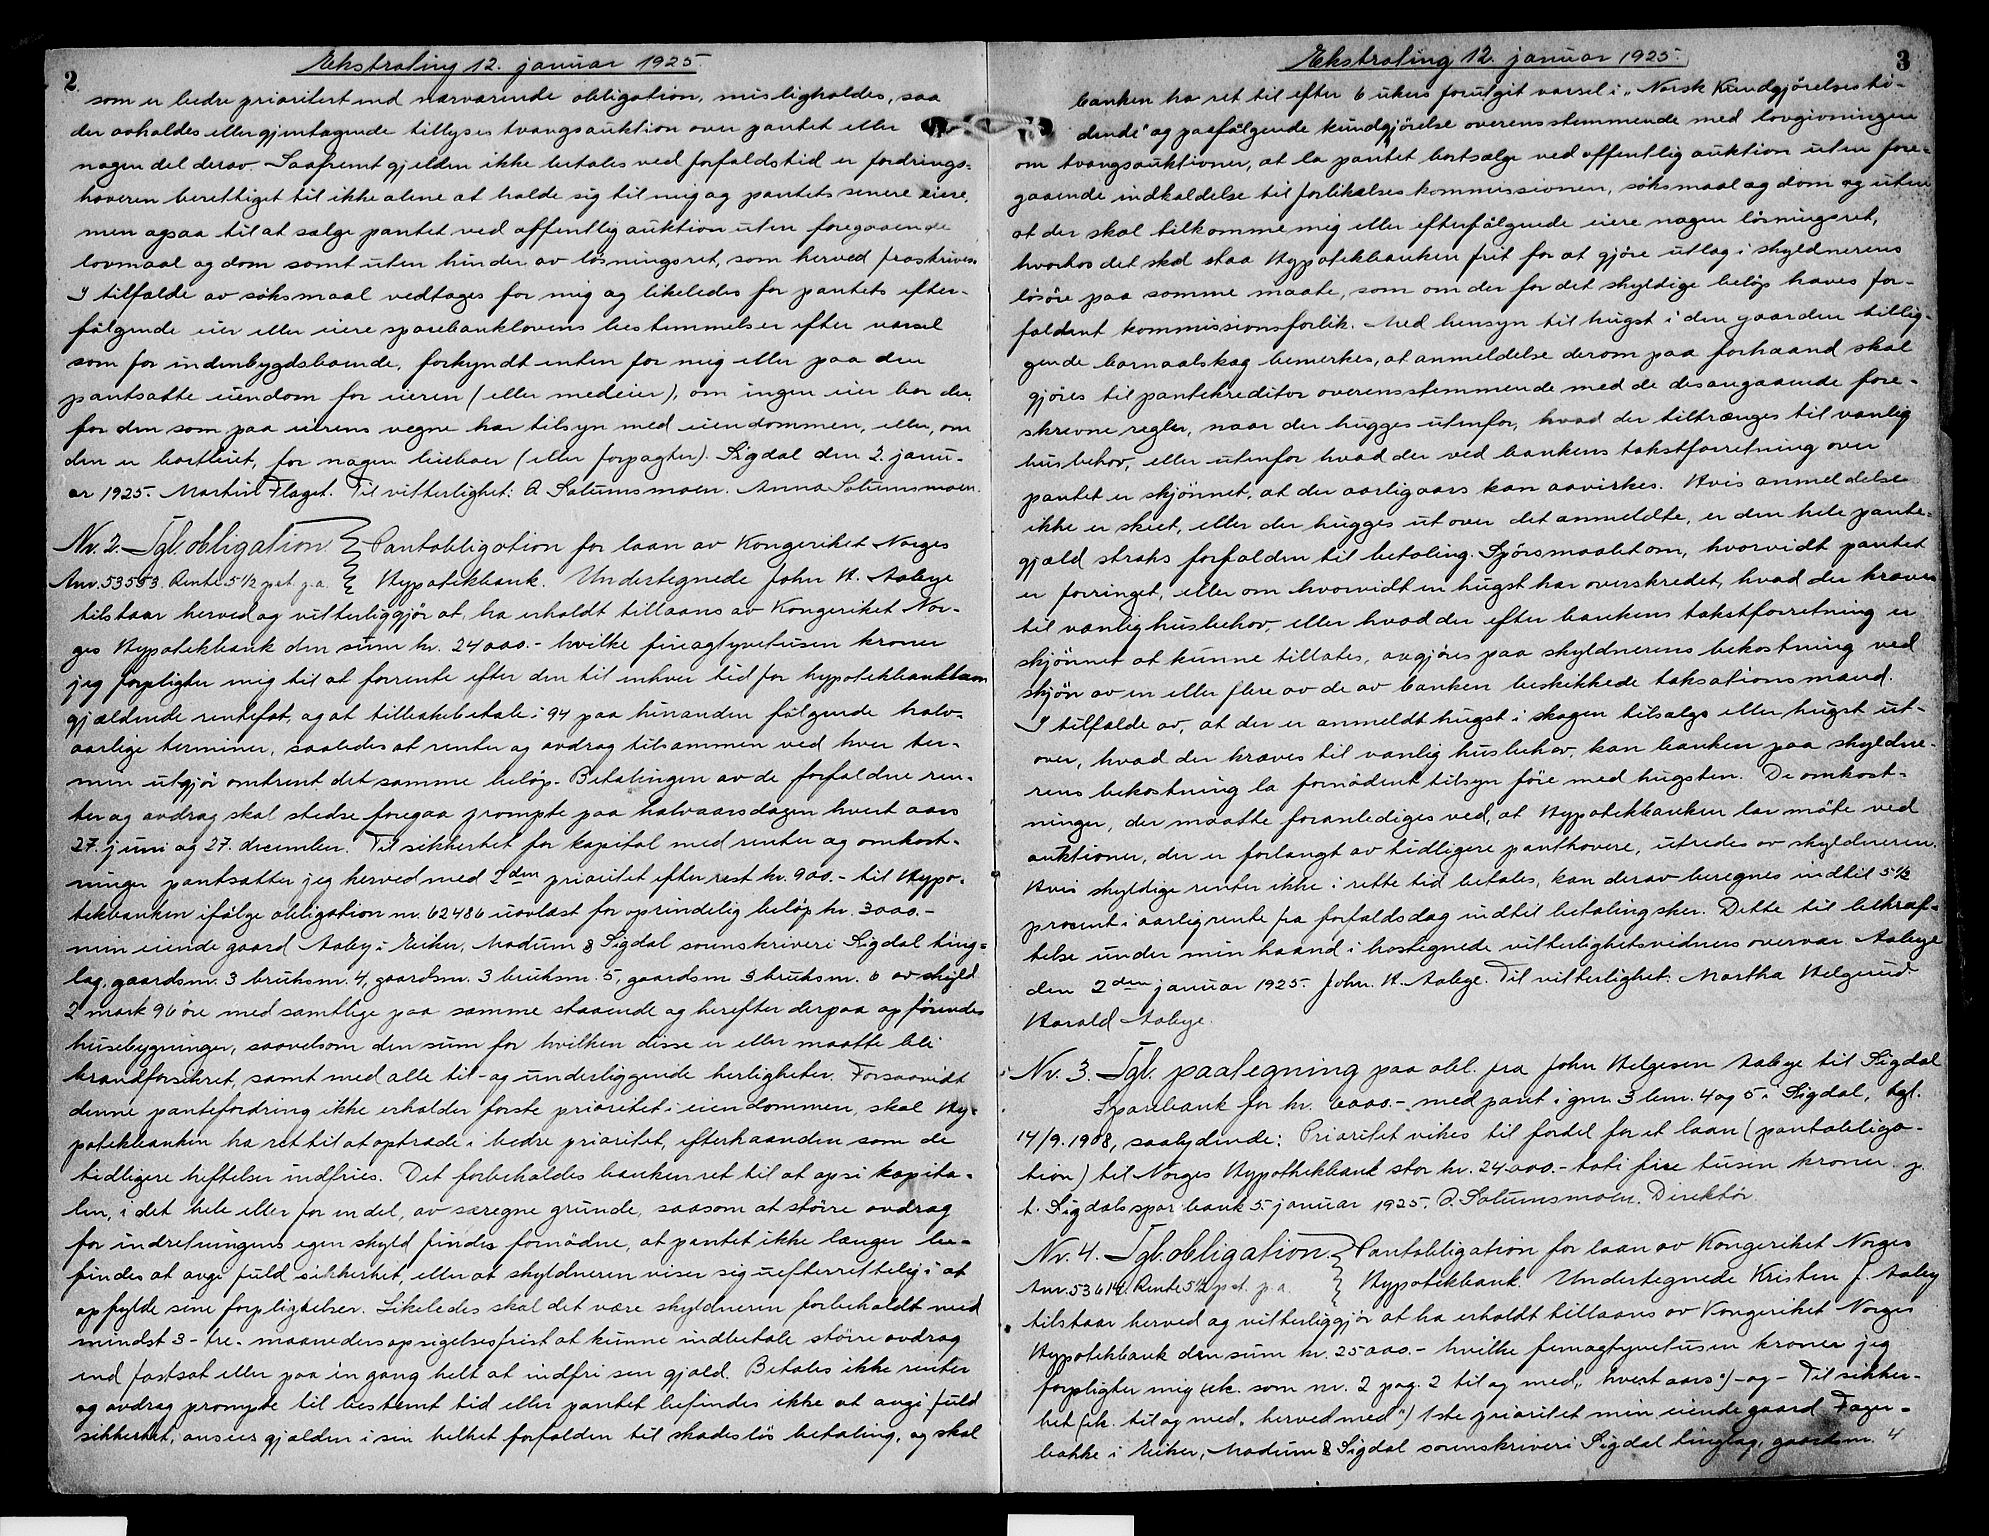 2
Ekstrating 12. januar 1925.
som er bedre prioritert end nærværende obligation, misligholdes, saa
der avholdes eller gjentagende tillyses tvangsauktion over pantet eller
nogen del derav. Saafremt gjelden ikke betales ved forfaldstid er fordrings-
haveren berettiget til ikke alene at holde sig til mig og pantets senere eiere,
men ogsaa til at sælge pantet ved offentlig auktion uten foregaaende
lovmaal og dom samt uten hinder av løsningsret, som herved fraskrives
I tilfælde av søksmaal vedtages for mig og likeledes for pantets efter-
følgende eier eller eiere sparebanklovens bestemmelser efter varsel
som for indenbygdsboende, forkyndt enten for mig eller paa den
pantsatte eiendom for eieren (eller medeier), om ingen eier bor der,
for den som paa eierens vegne har tilsyn med eiendommen, eller, om
den er bortleiet, for nogen leieboer (eller forpagter). Sigdal den 2. janu-
ar 1925. Martin Flaget. Til vitterlighet: O Solumsmoen. Anna Solumsmoen.
Nr. 2. Tgl. obligation. Pantobligation for laan av Kongeriket Norges
Anv. 53553. Rente 5 1/2 pct. p.a. Hypotekbank. Undertegnede John H. Aabye
tilstaar herved og vitterliggjør at ha erholdt tillaans av Kongeriket Nor-
ges Hypotekbank den sum kr. 24000.- hvilke fireogtyvetusen kroner
jeg forpligter mig til at forrente efter den til enhver tid for hypotekbanklaan
gjældende rentefot, og at tilbakebetale i 94 paa hinanden følgende halv-
aarlige terminer, saaledes at renter og avdrag tilsammen ved hver ter-
min utgjør omtrent det samme beløp. Betalingen av de forfaldne ren-
ter og avdrag skal stedse foregaa prompte paa halvaarsdagen hvert aars
27. juni og 27. december. Til sikkerhet for kapital med renter og omkost-
ninger pantsætter jeg herved med 2den prioritet efter rest kr. 900.- til Hypo-
tekbanken ifølge obligation nr. 62486 uavlæst for oprindelig beløp kr. 3000.-
min eiende gaard Aaby i Eiker, Modum & Sigdal sorenskriveri Sigdal ting-
lag, gaardsnr. 3 bruksnr. 4, gaardsnr. 3 bruksnr. 5, gaardsnr 3 bruksnr. 6 av skyld
2 mark 96 øre med samtlige paa samme staaende og herefter derpaa opførendes
husebygninger, saavelsom den sum for hvilken disse er eller maatte bli
brandforsikret, samt med alle til- og underliggende herligheter. Forsaavidt
denne pantefordring ikke erholder første prioritet i eiendommen, skal Hy-
potekbanken ha ret til at optræde i bedre prioritet, efterhaanden som de
tidligere heftelser indfries. Det forbeholdes banken ret til at opsi kapita-
len, i det hele eller for en del, av særegne grunde, saasom at større avdrag
for indretningens egen skyld findes fornødne, at pantet ikke længer be-
findes at avgi fuld sikkerhet, eller at skyldneren viser sig uefterrettelig i at
opfylde sine forpligtelser. Likeledes skal det være skyldneren forbeholdt med
mindst 3- tre- maaneders opsigelsesfrist at kunne indbetale større avdrag
end fastsat eller paa en gang helt at indfri sin gjæld. Betales ikke renter
og avdrag prompte til bestemt tid eller pantet befindes ikke at avgi fuld
sikkerhet, ansees gjælden i sin helhet forfalden til skadesløs betaling, og skal
3
Ekstrating 12. januar 1925.
banken ha ret til efter 6 ukers forutgit varsel i „Norsk Kundgjørelsesti-
dende" og paafølgende kundgjørelse overensstemmende med lovgivningen
om tvangsauktioner, at la pantet bortsælge ved offentlig auktion uten fore-
gaaende indkaldelse til forlikelseskommissionen, søksmaal og dom og uten
at der skal tilkomme mig eller efterfølgende eiere nogen løsningsret,
hvorhos det skal staa Hypotekbanken frit for at gjøre utlæg i skyldnerens
løsøre paa samme maate, som om der for det skyldige beløp haves for-
faldent kommissionsforlik. Med hensyn til hugst i den gaarden tillig-
gende barnaalskog bemerkes, at anmeldelse derom paa forhaand skal
gjøres til pantekreditor overensstemmende med de desangaaende fore-
skrevne regler, naar der hugges utenfor, hvad der tiltrænges til vanlig
husbehov, eller utenfor hvad der ved bankens takstforretning over
pantet er skjønnet, at der aarligaars kan avvirkes. Hvis anmeldelse
ikke er skeet, eller der hugges ut over det anmeldte, er den hele pante-
gjæld straks forfalden til betaling. Spørsmaalet om, hvorvidt pantet
er forringet, eller om hvorvidt en hugst har overskredet, hvad der kræves
til vanlig husbehov, eller hvad der efter bankens takstforretning er
skjønnet at kunne tillates, avgjøres paa skyldnerens bekostning ved
skjøn av en eller flere av de av banken beskikkede taksationsmænd.
I tilfælde av, at der er anmeldt hugst i skogen tilsalgs eller hugst ut-
over, hvad der kræves til vanlig husbehov, kan banken paa skyldne-
rens bekostning la fornødent tilsyn føre med hugsten. De omkost-
ninger, der maatte foranlediges ved, at Hypotekbanken lar møte ved
auktioner, der er forlangt av tidligere panthavere, utredes av skyldneren.
Hvis skyldige renter ikke i rette tid betales, kan derav beregnes indtil 5 1/2
procent i aarlig rente fra forfaldsdag indtil betaling sker. Dette til bekræf-
telse under min haand i hostegnede vitterlighetsvidners overvær. Aabye
den 2den januar 1925. John. H. Aabye. Til vitterlighet. Martha Helgerud.
Harald Aabye.
Nr. 3. Tgl. paategning paa obl. fra John Helgesen Aabye til Sigdal
Sparebank for kr. 6000.- med pant i gnr. 3 bnr. 4 og 5 i Sigdal, tgl.
14/9. 1908, saalydende: Prioritet vikes til fordel for et laan (pantobliga-
tion) til Norges Hypothekbank stor kr. 24000.- toti fire tusen kroner. p.
t. Sigdals sparebank 5. januar 1925. O. Solumsmoen. Direktør.
Nr. 4. Tgl. obligation. Pantobligation for laan av Kongeriket Norges
Anv. 53614. Rente 5 1/2 pct. p.a. Hypotekbank. Undertegnede Kristen J. Aaby
tilstaar herved og vitterliggjør at ha erholdt tillaans av Kongeriket Norges
Hypotekbank den sum kr. 25000.- hvilke femogtyvetusen kroner jeg
forpligter mig (etc. som nr. 2 pag. 2 til og med „hvert aars":) -og- Til sikker-
het (etc. til og med „herved med":) 1ste prioritet min eiende gaard Fager-
bakke i Eiker, Modum & Sigdal sorenskriveri Sigdal tinglag, gaardsnr. 4